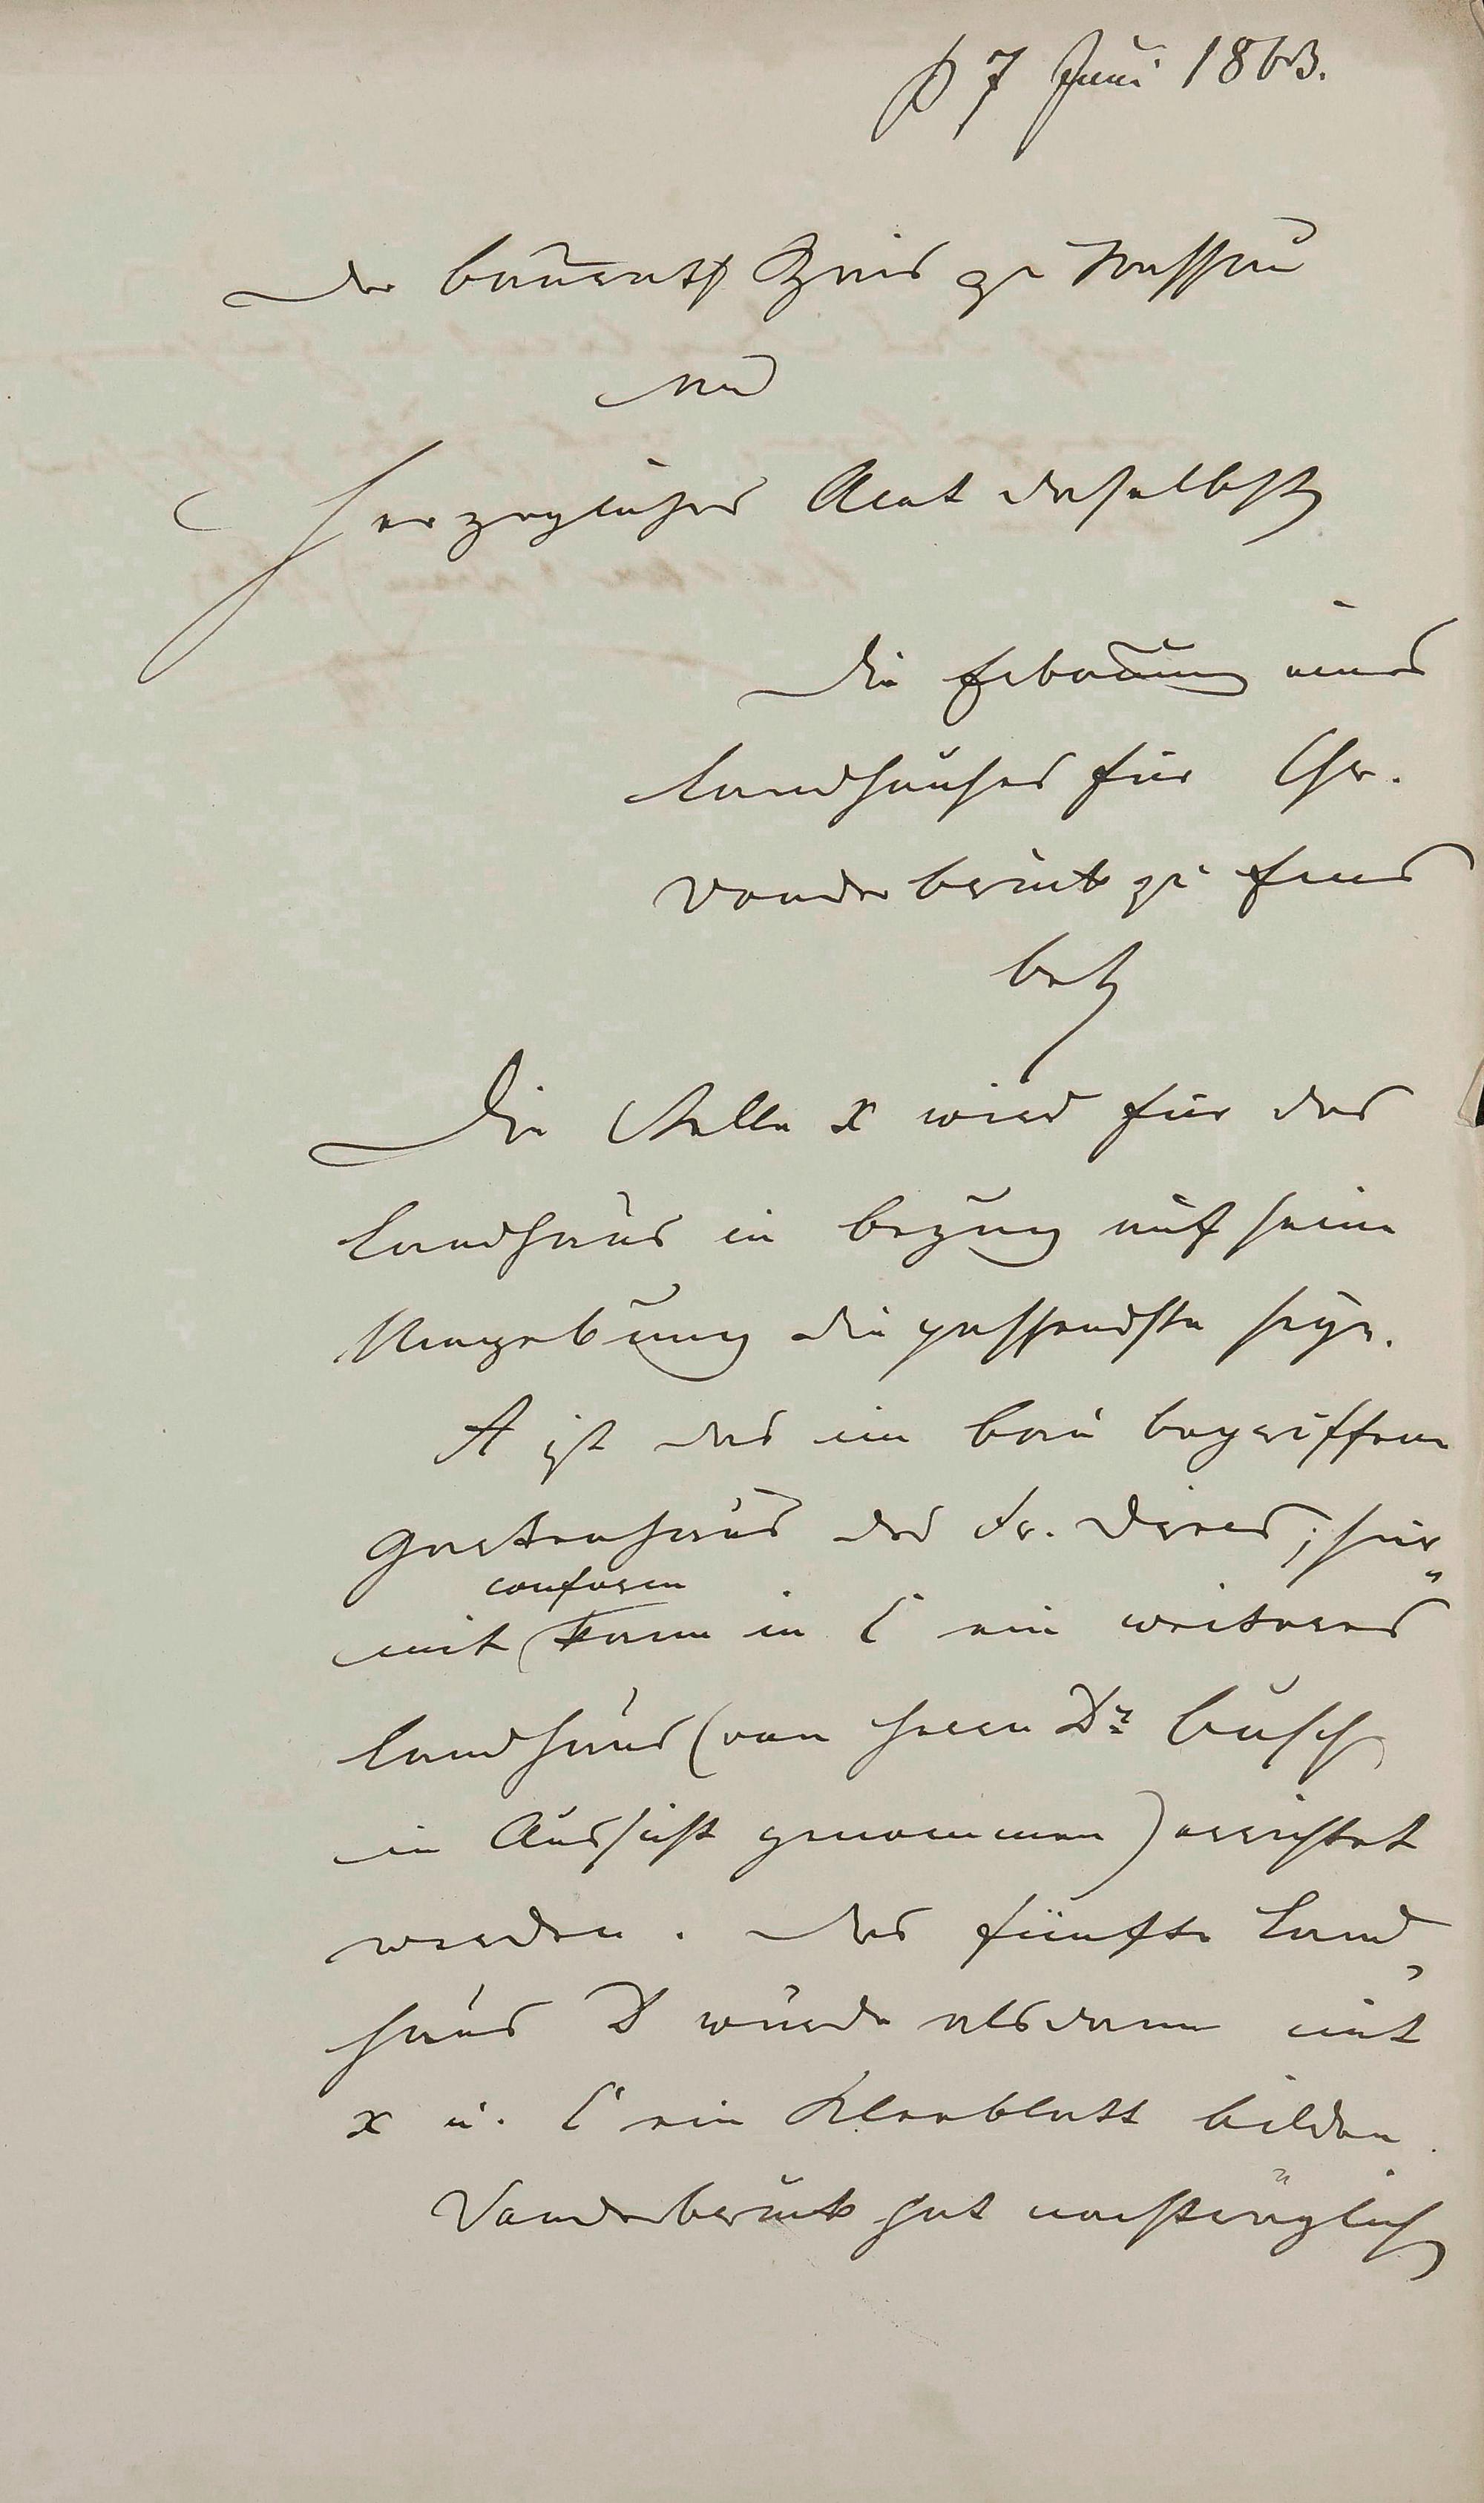 P 7 Juni 1863.
Der Baurath Zais zu Nassau
an
Herzogliches Amt daselbst
Die Erbauung eines
Landhauses für Chr.
Vonderbrück zu Ems
betr
Die Stelle x wird für das
Landhaus in Bezug auf seine
Umgebung die passendste seyn.
A ist das im Bau begriffene
Gartenhaus des Fr. ; hier„
conform
mit kann in C ein weiteres
Landhaus (von Herrn Dr Busch
in Aussicht genommen) errichtet
werden. Das fünfte Land„
haus D würde alsdann mit
x u. C ein Kleeblatt bilden.
Vonderbrück hat nachträglich